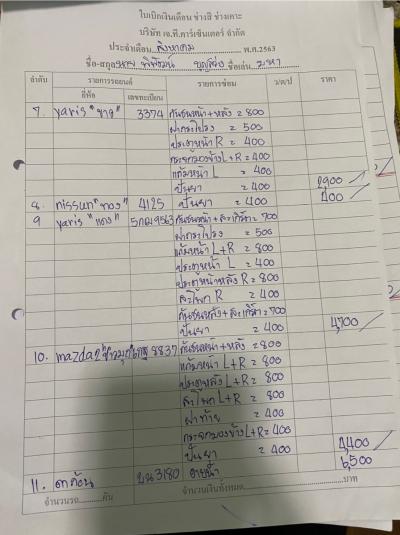 ใบเบิกเงินเดือน ช่างสี ช่างเคาะ
บริษัท เจ.ที.คาร์เซ็นเตอร์ จำกัด
ประจำเดือน สิงหาคม พ.ศ.2563
ชื่อ-สกุล นาย พิพัฒน์ ชื่อเล่น มหา
ลำดับ รายการรถยนต์ รายการซ่อม ว/ด/ป ราคา
ยี่ห้อ เลขทะเบียน
7. yaris "ขาว" 3374 กันชนหน้า+หลัง = 800
ฝากระโปรง = 500
ประตูหน้า R = 400
กระจกมองข้าง L+R = 400
แก้มหน้า L = 400
ปั้นยา = 400 2900
8. nissun "ทอง" 4125 ปั้นยา = 400 400
9 yaris "แดง" 5กฌ9563 กันชนหน้า+สเกิร์ต = 700
ฝากระโปรง = 500
แก้มหน้า L+R = 800
ประตูหน้า L = 400
ประตูหน้าหลัง R = 800
สะโพก R = 400
กันชนหลัง+สเกิร์ต = 700
ปั้นยา = 400 4,700
10. mazda2 "ขาวมุก" 8837 กันชนหน้า+หลัง = 800
แก้มหน้า L+R = 800
ประตูหลัง L+R = 800
สะโพก L+R = 800
ฝาท้าย = 400
กระจกมองข้าง L+R = 400
ปั้นยา = 400 4,400
11. ขน3180 6,500
จำนวนรถ คัน จำนวนเงินทั้งหมด บาท